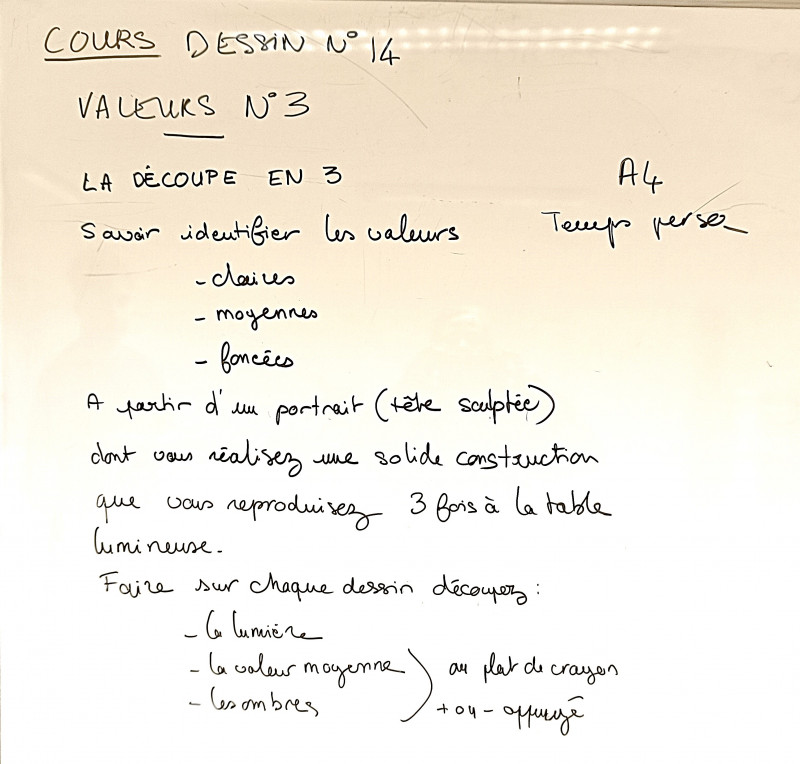 COURS DESSIN N° 14
VALEURS N°3
LA DÉCOUPE EN 3
A4
Savoir identifier les valeurs
Temps perso
- claires
- moyennes
- foncées
A partir d'un portrait (tête sculptée)
dont vous réalisez une solide construction
que vous reproduisez 3 fois à la table
lumineuse.
Faire sur chaque dessin découpez :
- la lumière
- la valeur moyenne
- les ombres
au plat de crayon
+ ou - appuyé